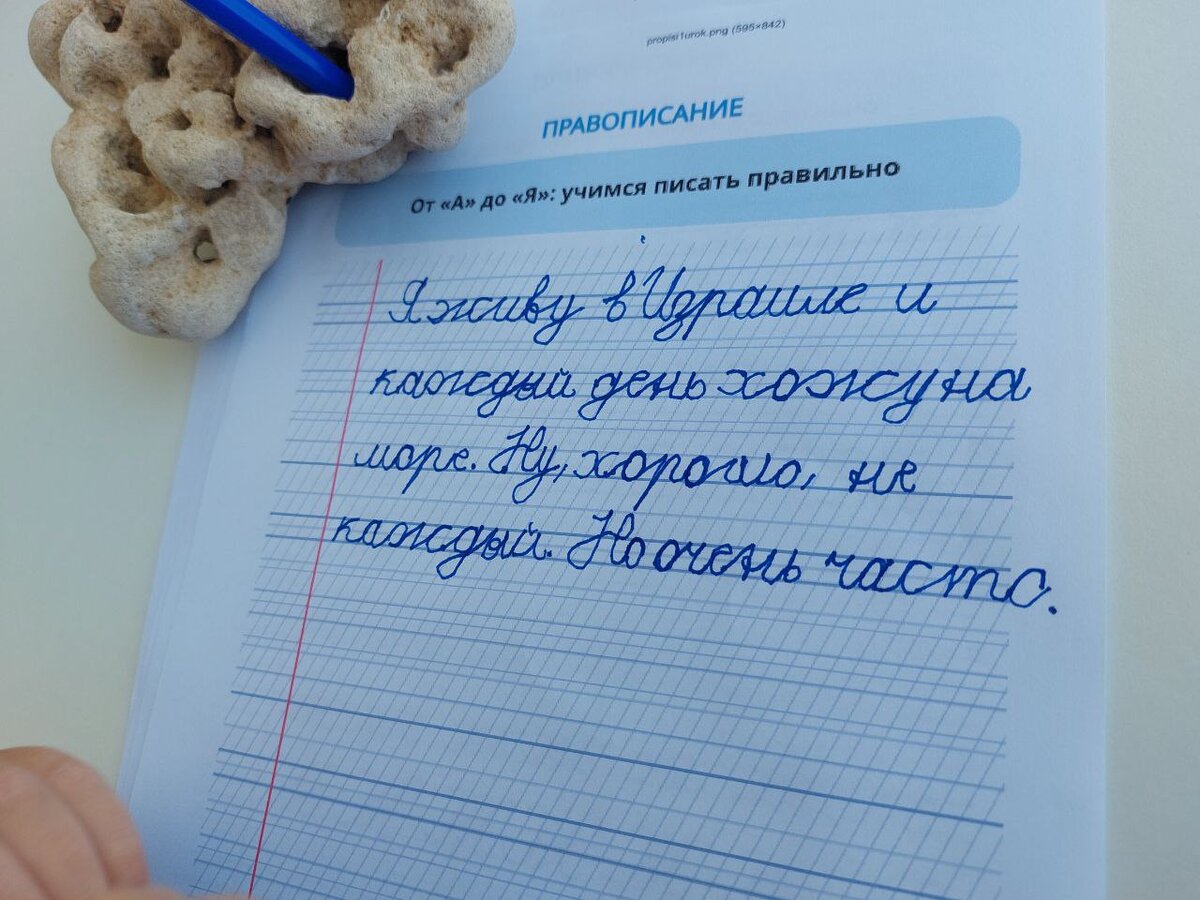 propisi1urok.png (595×842)
ПРАВОПИСАНИЕ
От «А» до «Я»: учимся писать правильно
Я живу в Израиле и
каждый день хожу на
море. Ну, хорошо, не
каждый. Но очень часто.